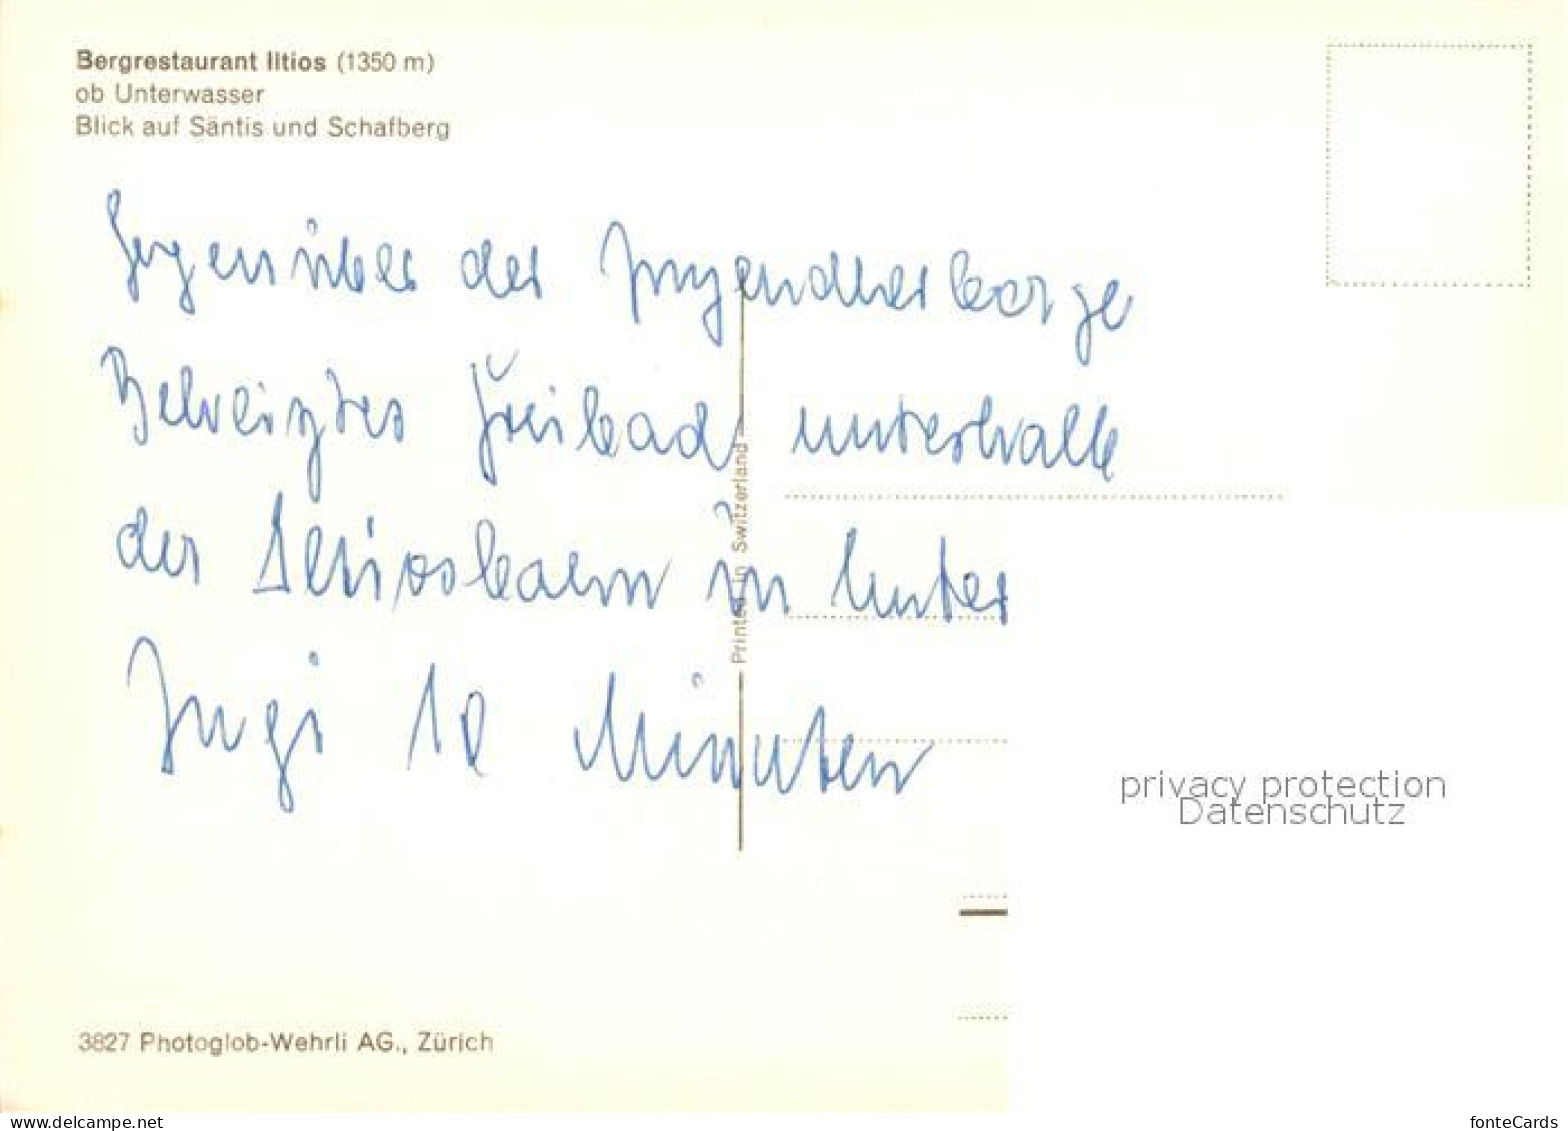 Bergrestaurant Iltios (1350 m)
ob Unterwasser
Blick auf Säntis und Schafberg
Gegenüber der Jugendherberge
Freibad unterhalb
der Iltiosbahn in Unter
Jugi 10 Minuten
Printed in Switzerland
privacy protection
Datenschutz
3827 Photoglob-Wehrli AG., Zürich
www.delcampe.net
fonteCards